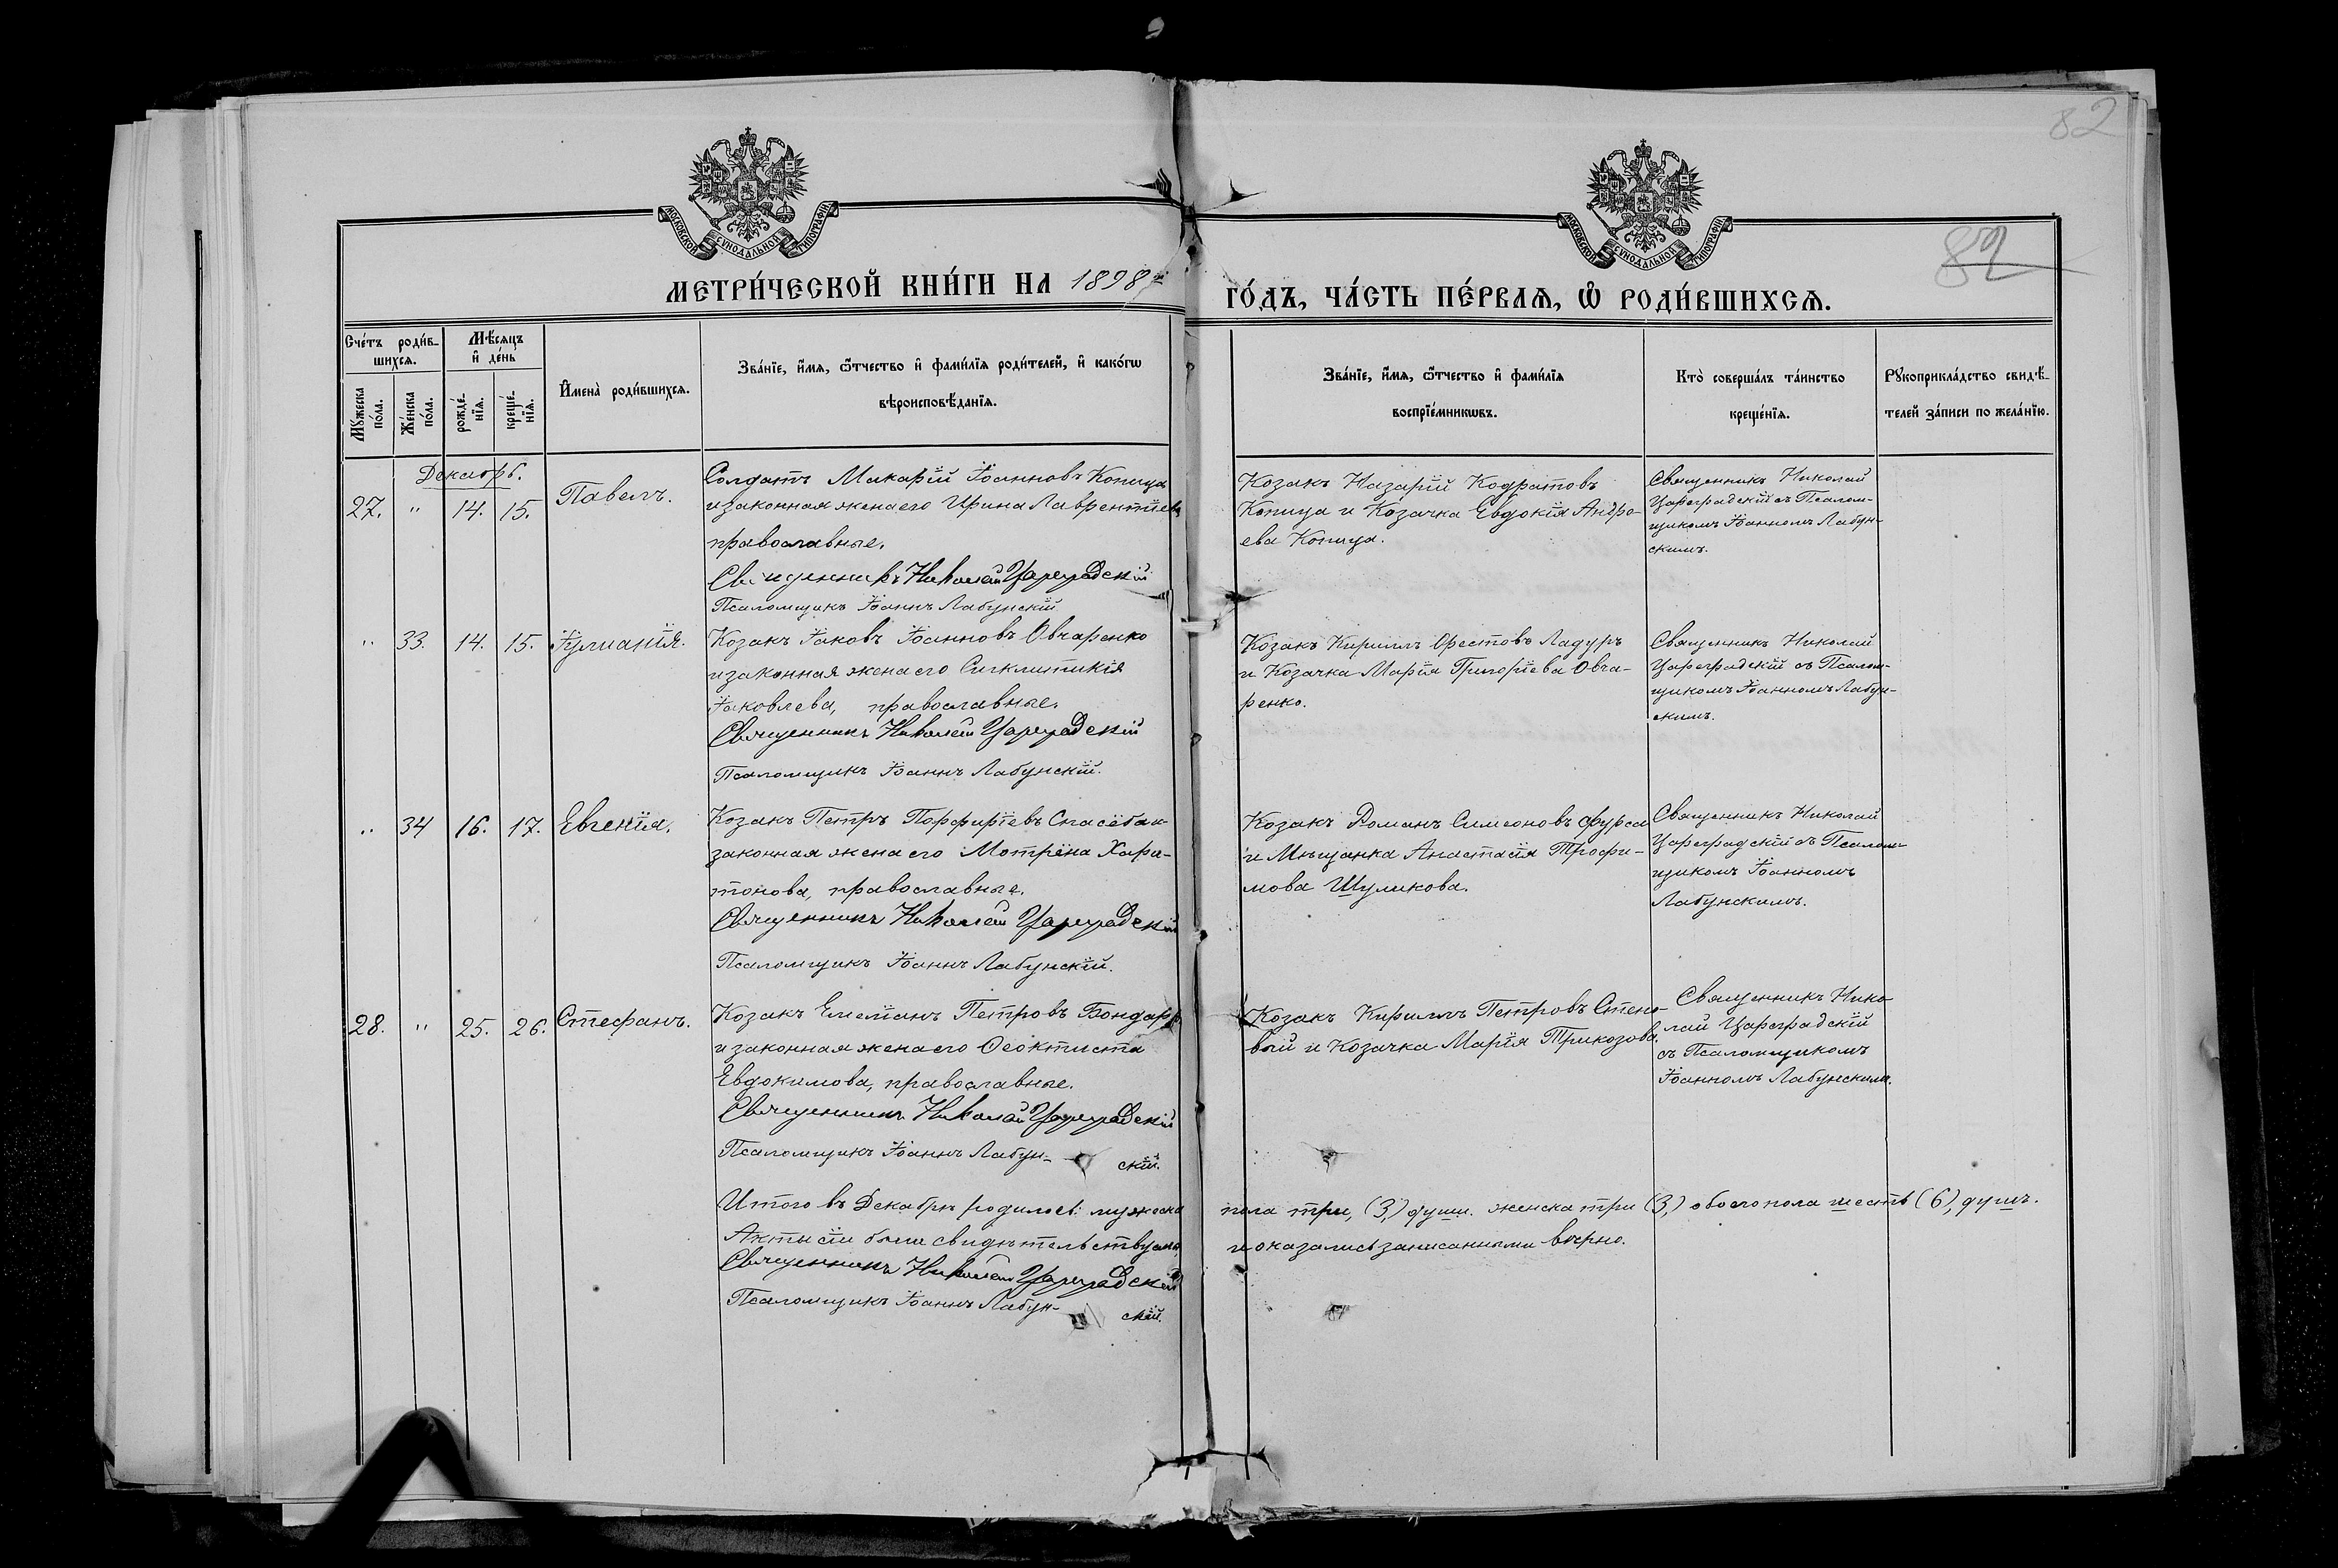 82
МОСКОВСКОЙ СУНОДАЛЬНОЙ ТИПОГРАФІИ
МОСКОВСКОЙ СУНОДАЛЬНОЙ ТИПОГРАФІИ
82
МЕТРИ́ЧЕСКОЙ КНИ́ГИ НА 1898й
ГО́ДЪ, ЧА́СТЬ ПЕ́РВАѦ, Ѡ҆ РОДИ́ВШИХСѦ.
Сче́тъ роди́в-
шихсѧ.
Мꙋ́жеска по́ла.
Же́нска по́ла.
Мѣ́сѧцъ
и҆ де́нь
рожде́-нїѧ.
креще́-нїѧ.
И҆мена̀ роди́вшихсѧ.
Зва́нїе, и҆́мѧ, ѻ҆́тчество и҆ фами́лїѧ роди́телей, и҆ како́гѡ
вѣроисповѣ́данїѧ.
Зва́нїе, и҆́мѧ, ѻ҆́тчество и҆ фами́лїѧ
воспрїе́мникѡвъ.
Кто̀ соверша́лъ та́инство
креще́нїѧ.
Рꙋкоприкла́дство свидѣ́-
телей за́писи по жела́нїю.
Декабрь.
27. " 14. 15. Павелъ.
Солдатъ Макарій Іоанновъ Копица
и законная жена его Ирина Лаврентіева
православные.
Священникъ Николай Цареградскій
Псаломщикъ Іоаннъ Лабунскій
Козакъ Назарій Кодратовъ
Копица и Козачка Евдокія Андре-
ева Копица.
Священникъ Николай
Цареградскій съ Псалом-
щикомъ Іоанномъ Лабун-
скимъ.
" 33. 14. 15. Іуліанія.
Козакъ Іаковъ Іоанновъ Овчаренко
и законная жена его Сигклитикія
Іаковлева, православные.
Священникъ Николай Цареградскій
Псаломщикъ Іоаннъ Лабунскій.
Козакъ Кириллъ Орестовъ Ладуръ
и Козачка Марія Григоріева Овча-
ренко.
Священникъ Николай
Цареградскій съ Псалом-
щикомъ Іоанномъ Лабун-
скимъ.
" 34 16. 17. Евгенія.
Козакъ Петръ Порфиріевъ
законная жена его Мотрена Хари-
тонова, православные.
Священникъ Николай Цареградскій
Псаломщикъ Іоаннъ Лабунскій.
Козакъ Романъ Симеоновъ Фурса
и Мѣщанка Анастасія Трофи-
мова Шуликова.
Священникъ Николай
Цареградскій съ Псалом-
щикомъ Іоанномъ
Лабунскимъ.
28. " 25. 26. Стефанъ.
Козакъ Емеліанъ Петровъ Бондарь
и законная жена его Ѳеоктиста
Евдокимова, православные.
Священникъ Николай Цареградскій
Псаломщикъ Іоаннъ Лабун- скій.
Козакъ Кириллъ Петровъ Степо-
вый и Козачка Марія Трикозова.
Священникъ Нико-
лай Цареградскій
съ Псаломщикомъ
Іоанномъ Лабунскимъ.
Итого въ Декабрѣ родилось: мужеска пола три, (3,) души. женска три (3,) обоего пола шесть (6), душъ.
Акты сіи были свидѣтельствуемы и оказались записанными вѣрно.
Священникъ Николай Цареградскій
Псаломщикъ Іоаннъ Лабун- скій.